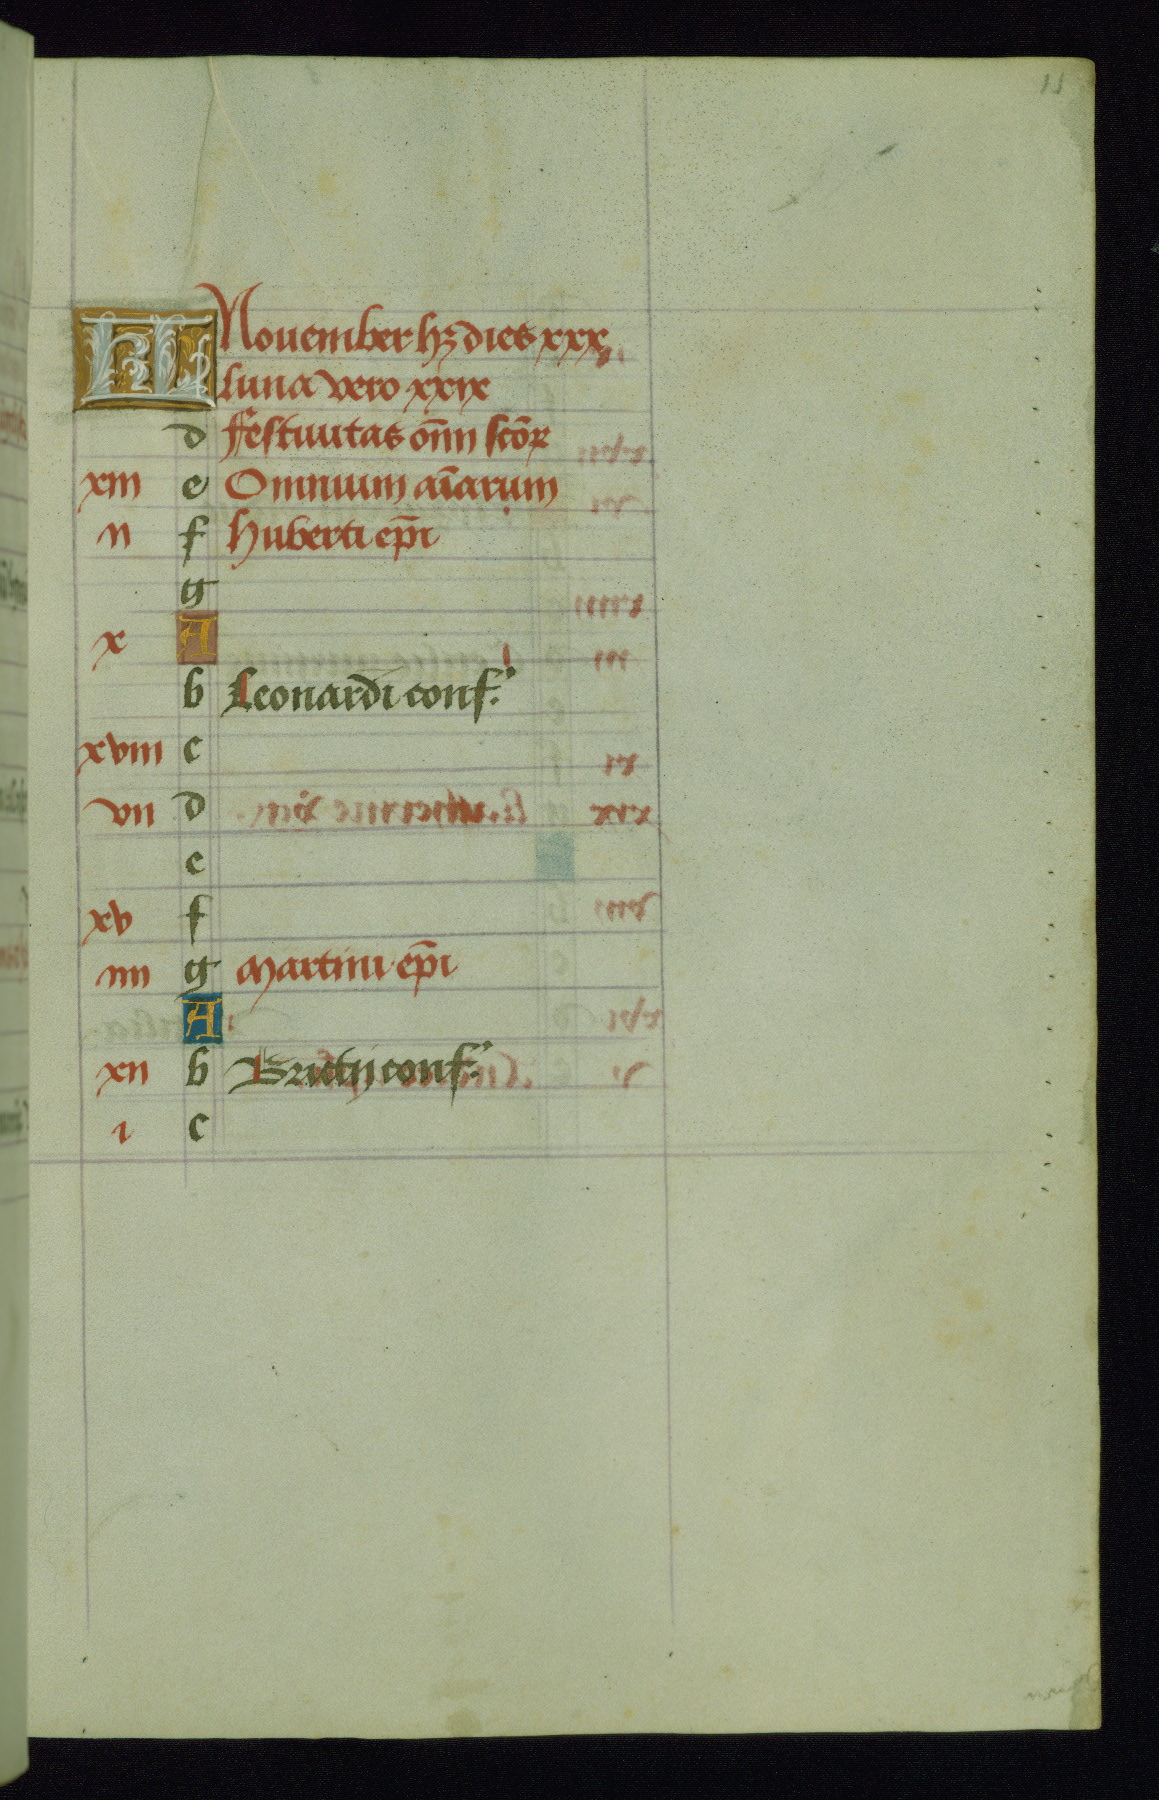 11
KL November hꝫ dies xxx
luna vero xxix
d Festiuitas om̄n sc̄oꝝ
xiii e Omnium ai̅arum
ii f Huberti ep̄i
g
x A
b Leonardi conf.
xviii c
vii d
e
xv f
iiii g Martini ep̄i
A
xii b Brictij conf.
i c